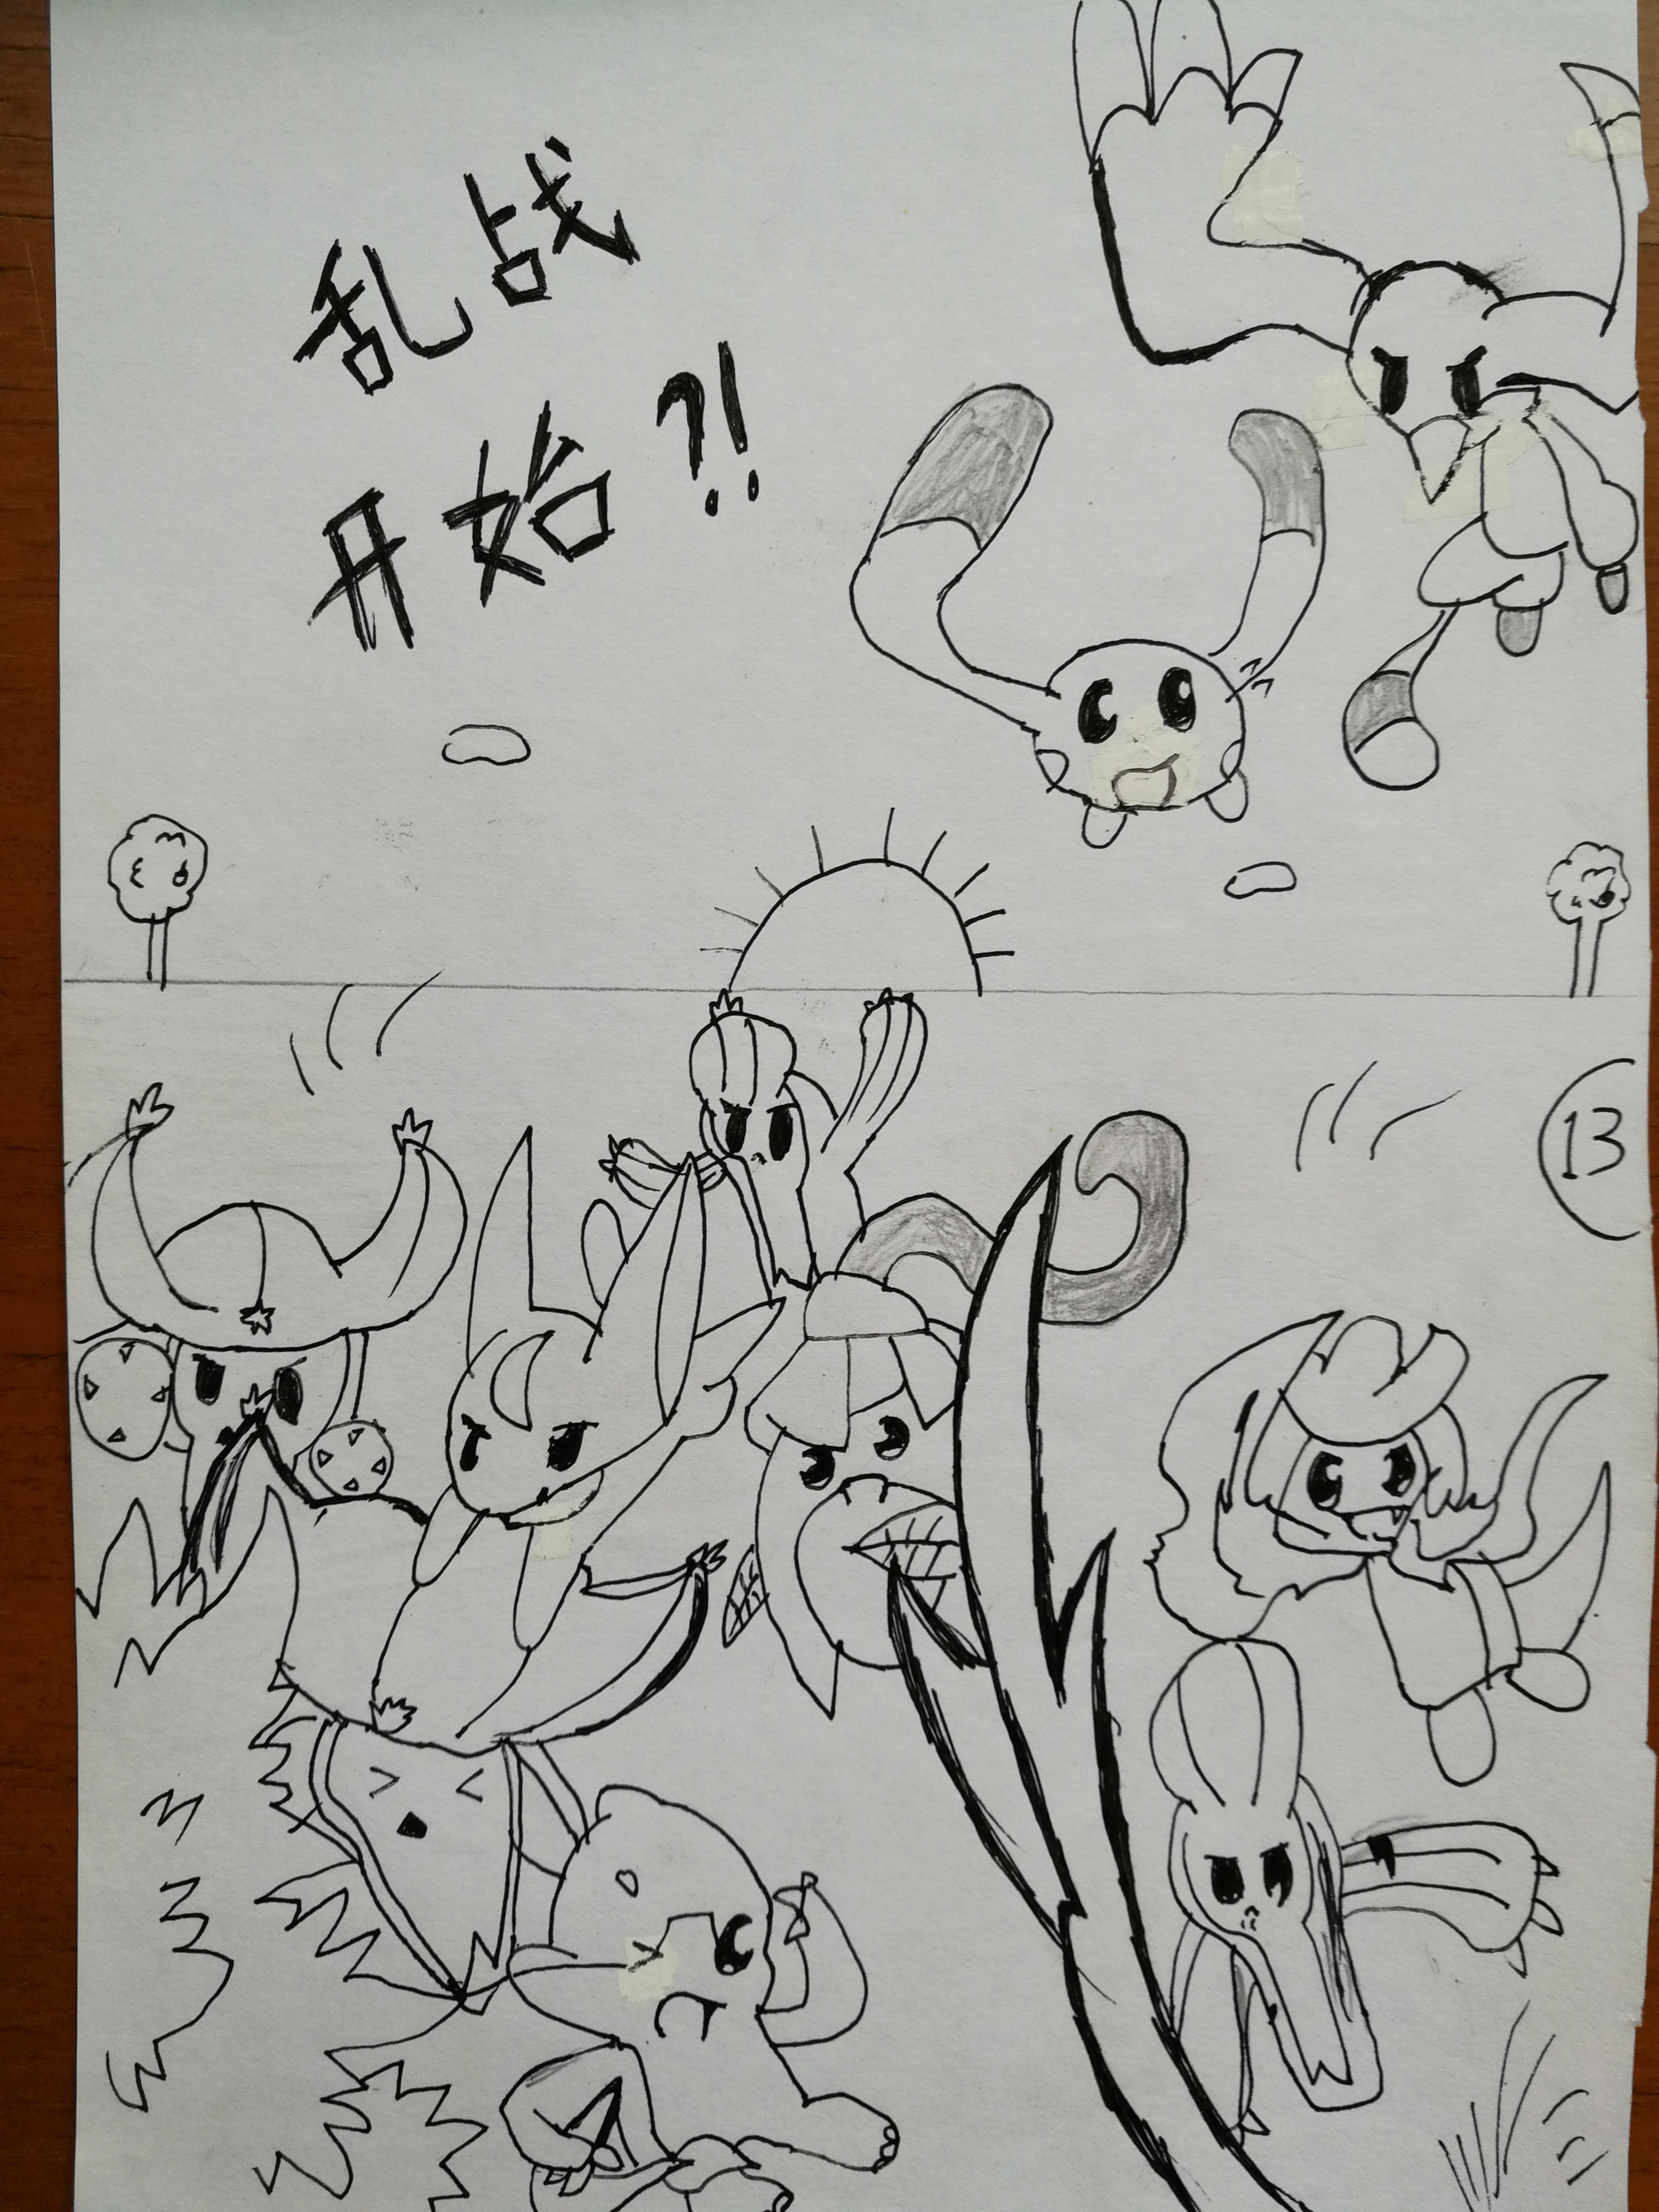 乱战
开始?!
13